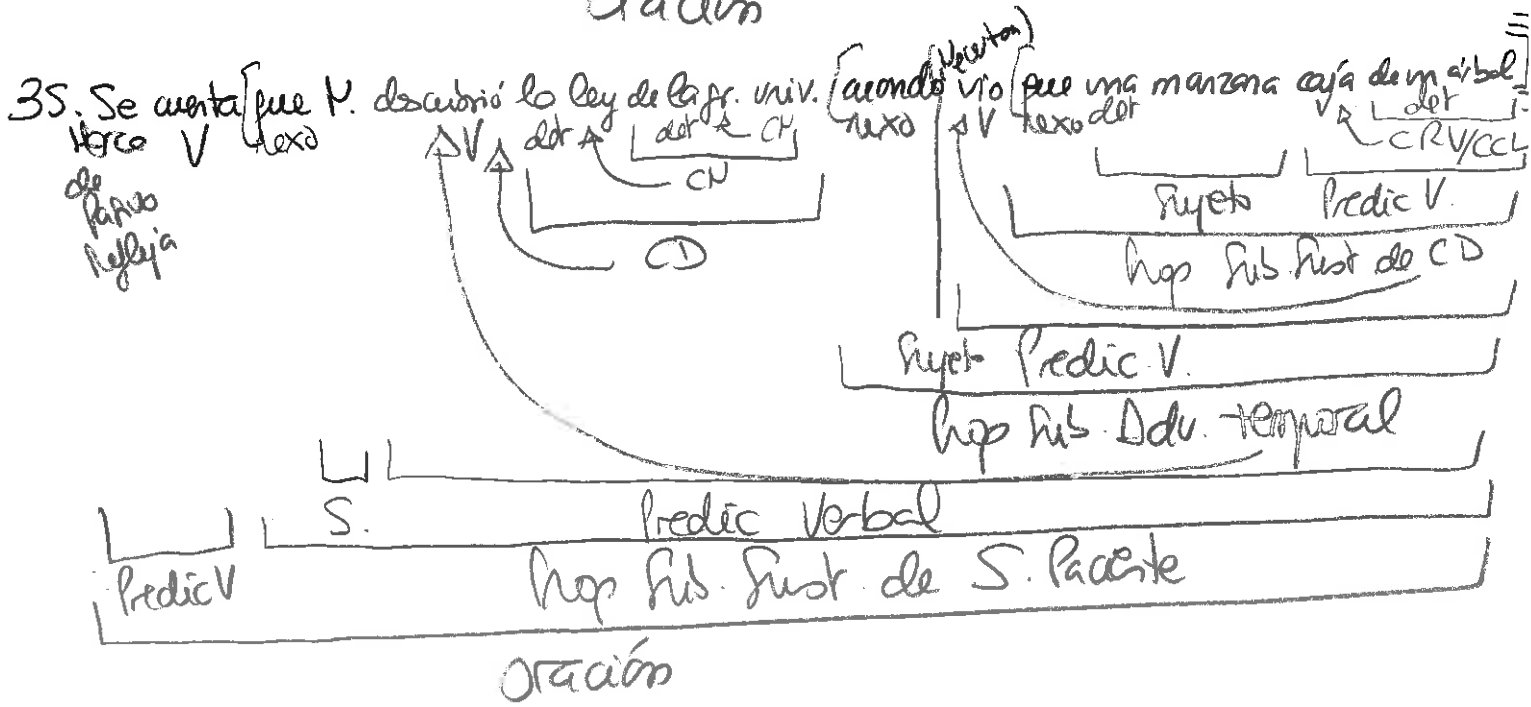 oración
(Newton)
35. Se cuenta [que N. descubrió la ley de la gr. univ. [cuando vio [que una manzana caía de un árbol]]]
Marca V nexo V det det CN nexo V nexo det V det
de CN CRV/CCL
Pasiva Sujeto Predic V.
Refleja CD Prop Sub. Sust de CD
Sujeto Predic. V.
Prop Sub. Adv. temporal
S. Predic Verbal
Predic V Prop Sub. Sust. de S. Paciente
oración